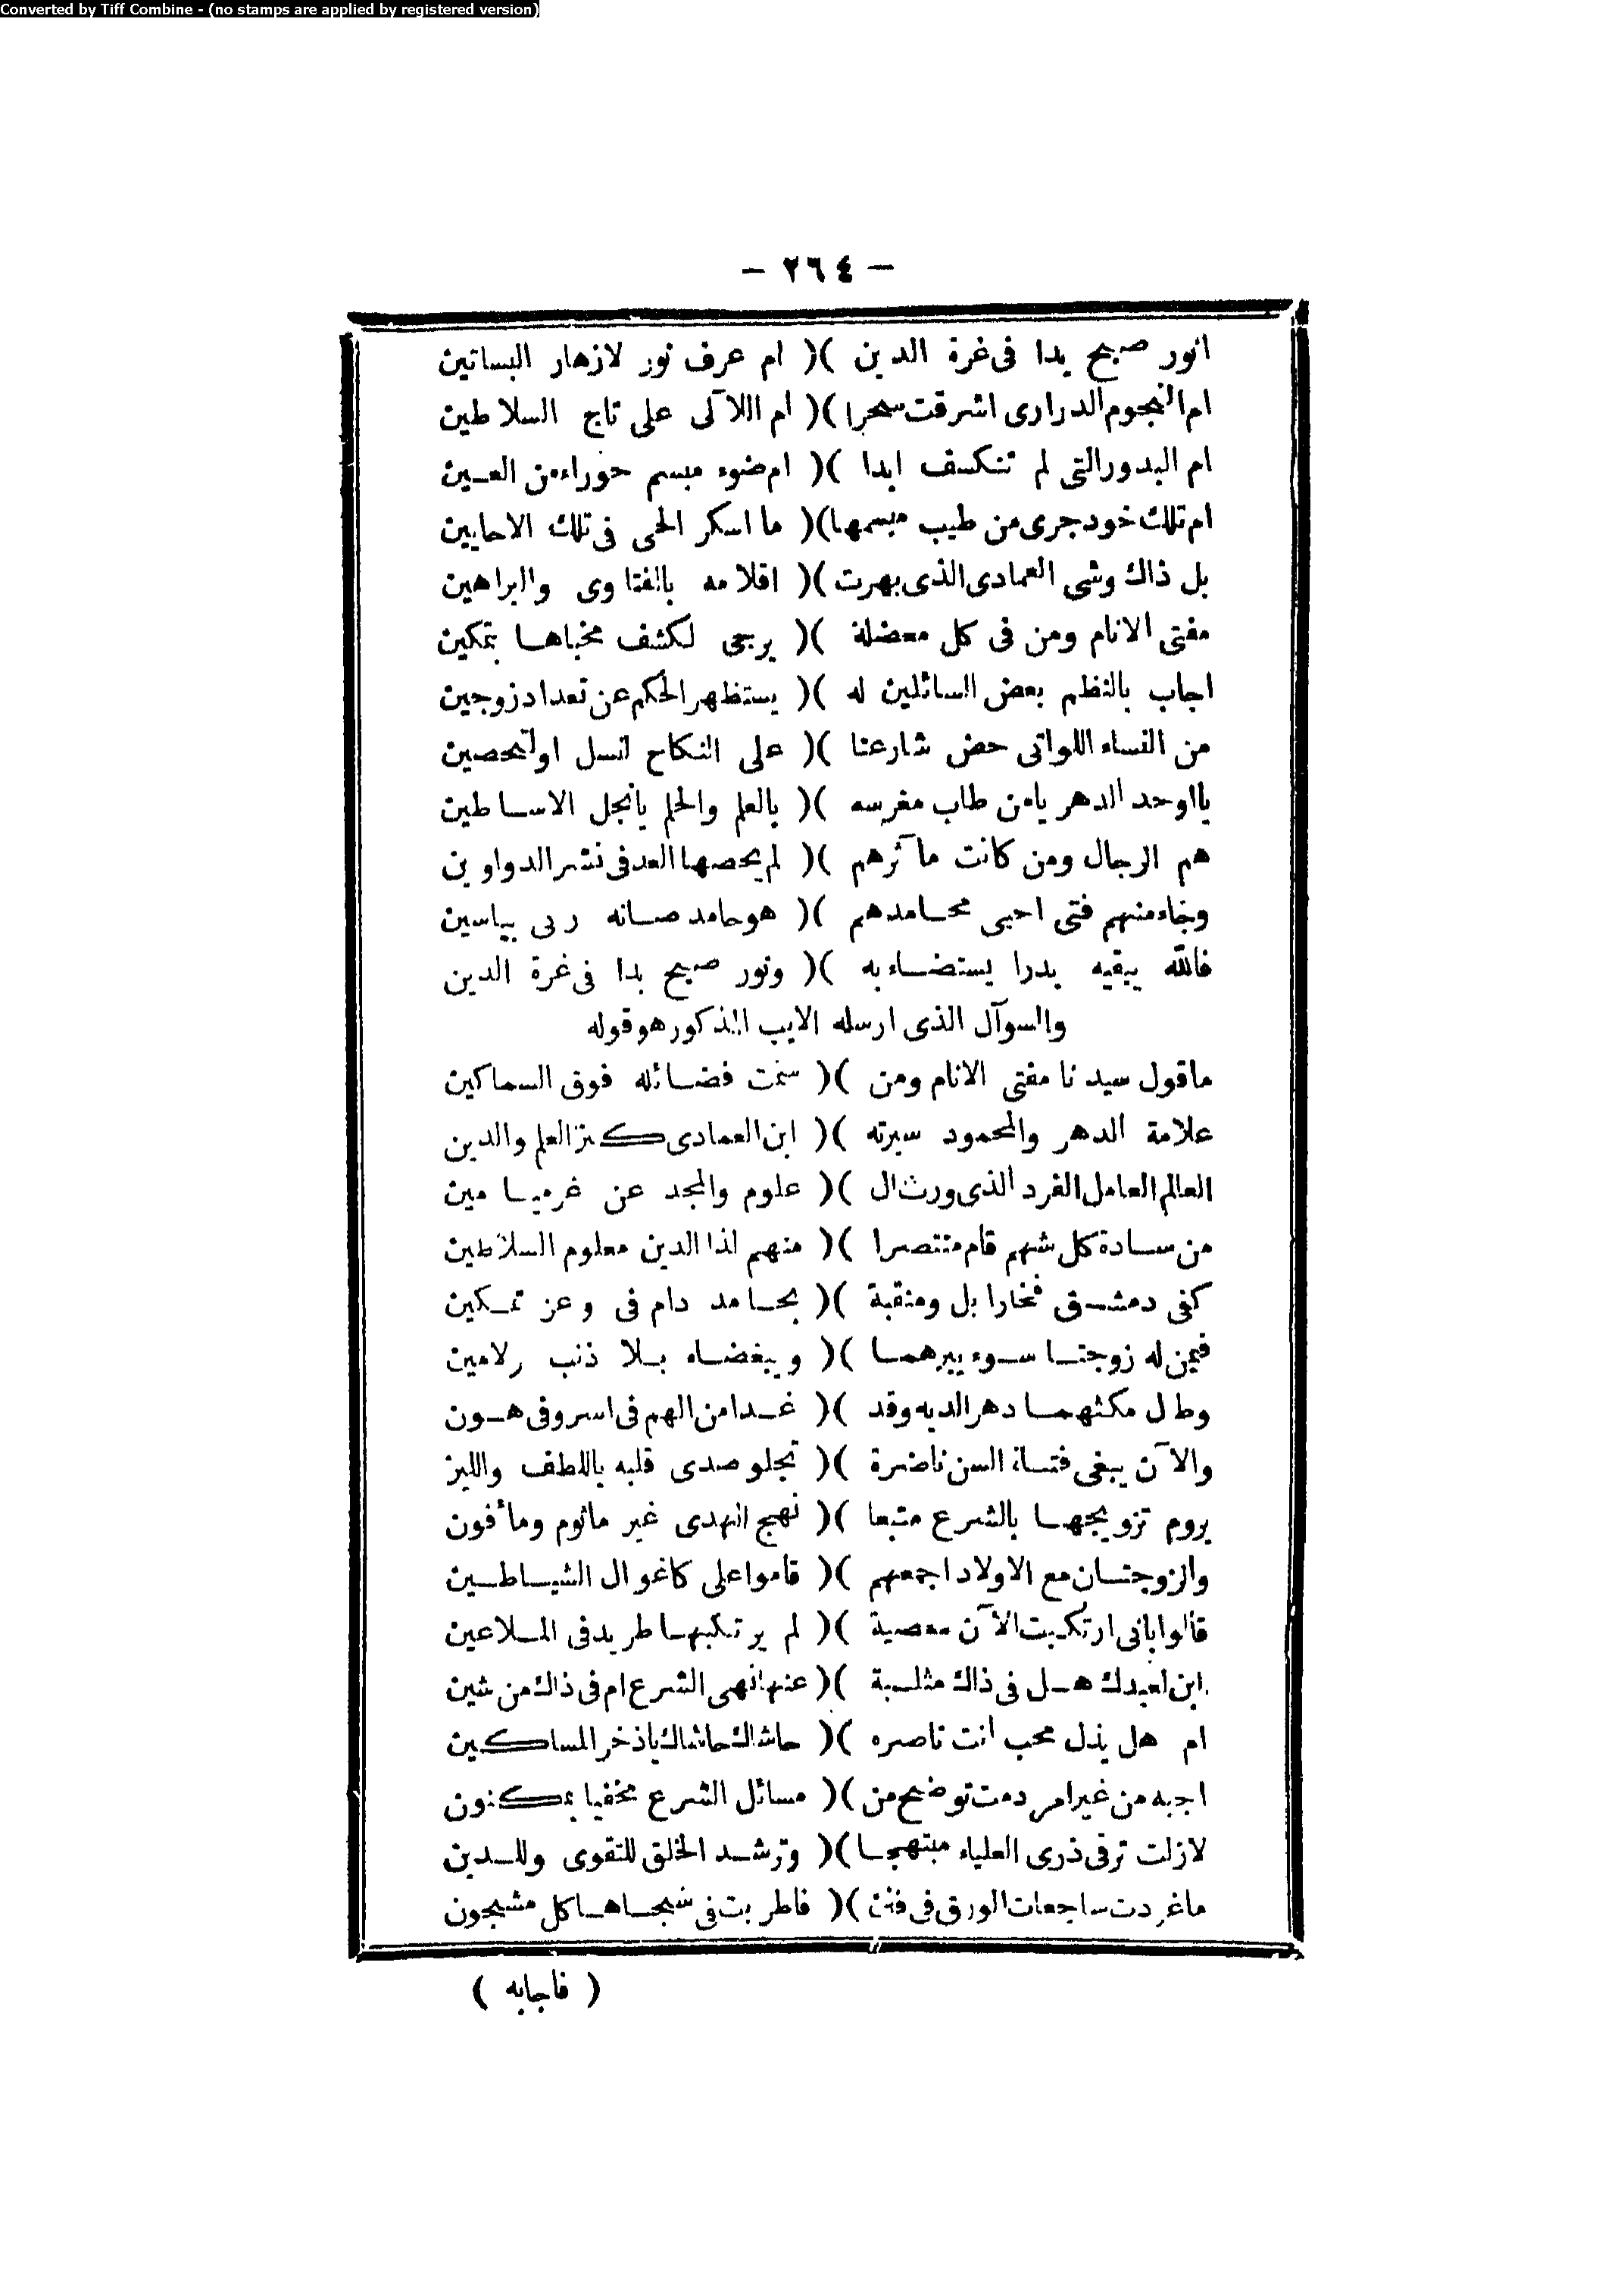 Converted by Tiff Combine - (no stamps are applied by registered version)
— ٢٦٤ —
انور صبح بدا فى غرة الدين )( ام عرف نور لازهار البساتين
ام النجوم الدرارى اشرقت سحرا )( ام اللآلى على تاج السلاطين
ام البدور التى لم تنكسف ابدا )( ام ضوء مبسم حوراء من العـين
ام تلك خود جرى من طيب مبسمها )( ما اسكر الحى فى تلك الاحايين
بل ذاك وشى العمادى الذى بهرت )( اقلامه بالفتاوى والبراهين
مفتى الانام ومن فى كل معضلة )( يرجى لكشف مخباها بتمكين
اجاب بالنظم بعض السائلين له )( يستظهر الحكم عن تعداد زوجين
من النساء اللواتى حض شارعنا )( على النكاح لنسل او لتحصين
يا اوحد الدهر يامن طاب مغرسه )( بالعلم والحلم يا نجل الاساطين
هم الرجال ومن كانت مآثرهم )( لم يحصها العد فى نشر الدواوين
وجاء منهم فتى احيى محامدهم )( هو حامد صانه ربى بياسين
فالله يبقيه بدرا يستضاء به )( ونور صبح بدا فى غرة الدين
والسوآل الذى ارسله الايب المذكور هو قوله
ما قول سيدنا مفتى الانام ومن )( سمت فضائله فوق السماكين
علامة الدهر والمحمود سيرته )( ابن العمادى كنز العلم والدين
العالم العامل الفرد الذى ورث ال )( علوم والمجد عن غر ميامين
من سادة كل شهم قام منتصرا )( منهم لذا الدين معلوم السلاطين
كفى دمشق فخارا بل ومنقبة )( بحامد دام فى وعز تمكين
فيمن له زوجتا سوء يبرهما )( ويبغضاه بلا ذنب ولامين
وطال مكثهما دهرا لديه وقد )( غدا من الهم فى اسر وفى هون
والآن يبغى فتاة السن ناضرة )( تجلو صدى قلبه باللطف واللين
يروم تزويجها بالشرع متبعا )( نهج الهدى غير ماثوم ومأفون
والزوجتان مع الاولاد اجمعهم )( قاموا على كاغوال الشياطين
قالوا بانى ارتكبت الآن معصية )( لم يرتكبها طريد فى الملاعين
ابن لعبدك هل فى ذاك مثلبة )( عنها نهى الشرع ام فى ذاك من شين
ام هل يذل محب انت ناصره )( حاشاك حاشاك ياذخر المساكين
اجبه من غير امر دمت توضيح من )( مسائل الشرع مخفيا بمكنون
لازلت ترقى ذرى العلياء مبتهجا )( وترشد الخلق للتقوى وللدين
ما غردت ساجعات الورق فى فنن )( فاطربت فى شجاها كل مشجون
( فاجابه )